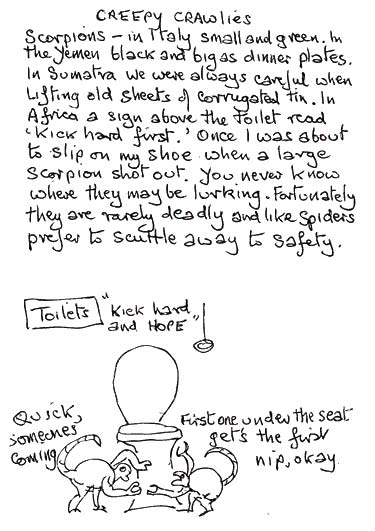 CREEPY CRAWLIES
Scorpions – in Italy small and green. In
the Yemen black and big as dinner plates.
In Sumatra we were always careful when
Lifting old sheets of corrugated tin. In
Africa a sign above the Toilet read
'Kick hard first.' Once I was about
to slip on my shoe when a large
scorpion shot out. You never know
where they may be lurking. Fortunately
they are rarely deadly and like Spiders
prefer to scuttle away to safety.
Toilets
"Kick hard
and HOPE"
Quick,
someones
coming
First one under the seat
gets the first
nip, okay.